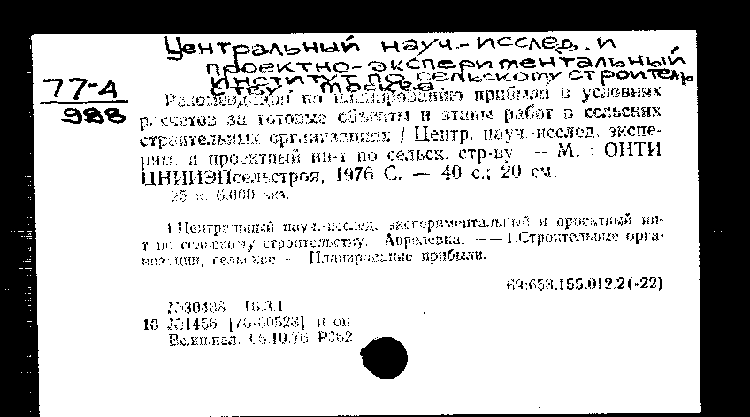 Центральный науч.-исслед. и
проектно-экспериментальный
институт по сельскому строитель-
ству. Москва
77-4
988
Рекомендации по планированию прибыли в условиях
расчетов за готовые объекты и этапы работ в сельских
строительных организациях / Центр. науч.-исслед. экспе-
рим. и проектный ин-т по сельск. стр-ву — М. : ОНТИ
ЦНИИЭПсельстроя, 1976 С. — 40 с.; 20 см.
25 к. экз.
1.Центральный науч.-исслед. экспериментальный и проектный ин-
т по сельскому строительству. Апрелевка. — — 1.Строительные орга-
низации, сельские — Планирование прибыли.
69:658.155.012.2(-22)
16.3.1
18 №1456 [76-60523] п оп
Вс.кн.пал.